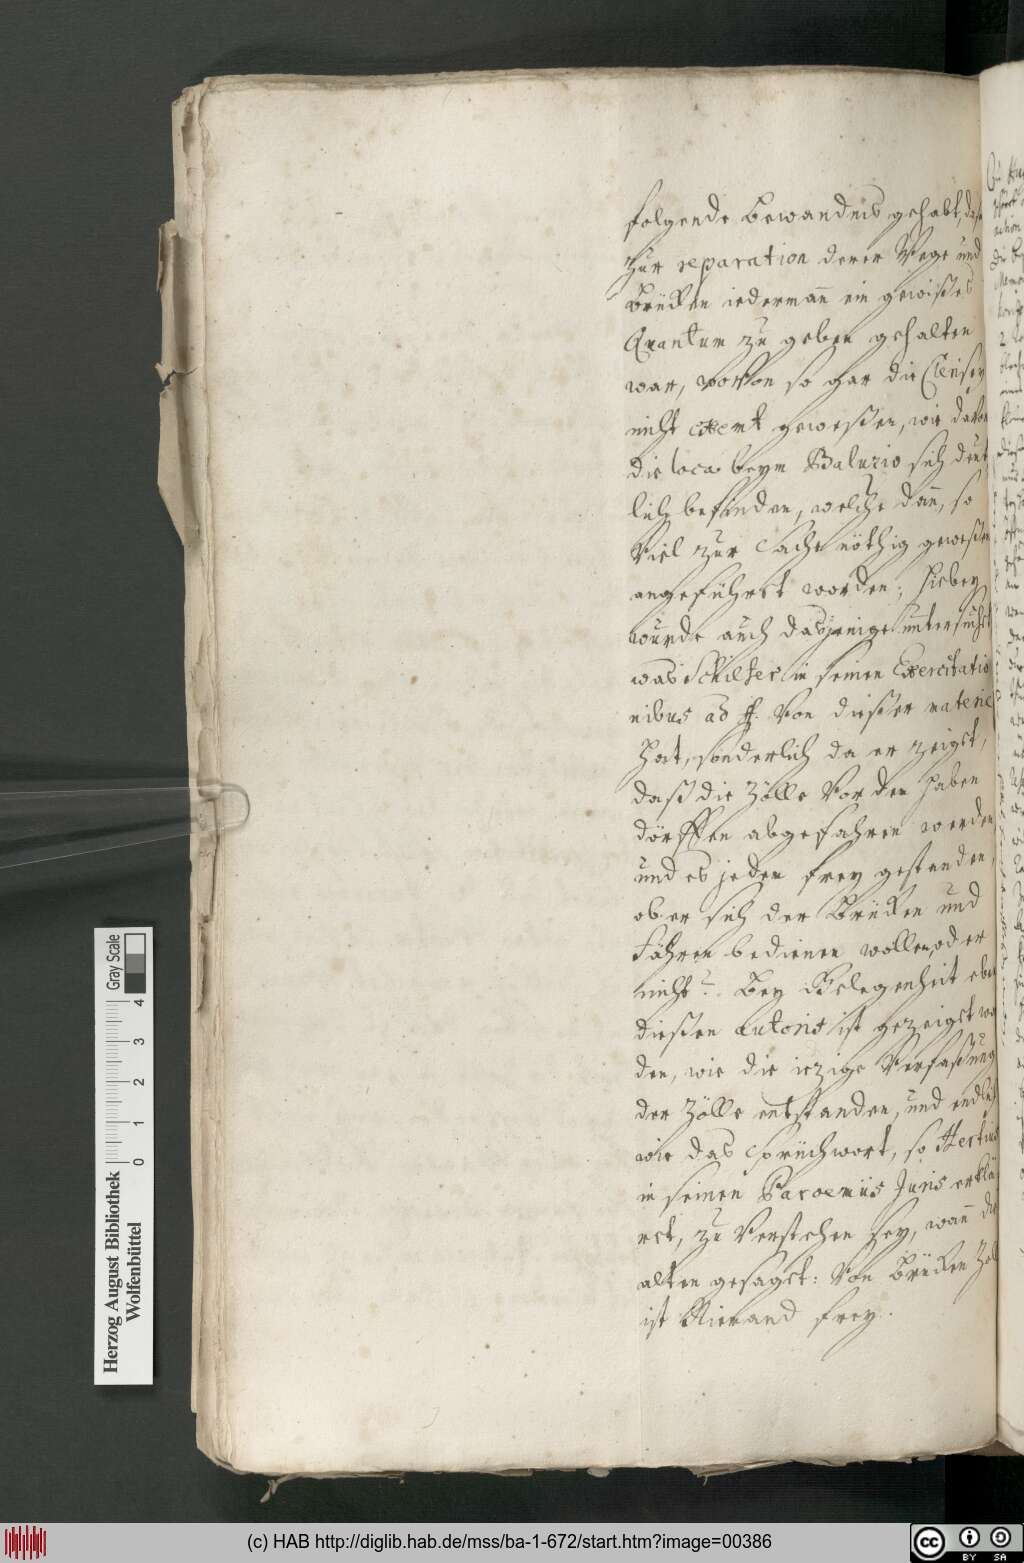 folgende bewandnis gehabt, daß
zur reparation derer Wege und
Brücken iedermañ ein gewißes
Quantum zu geben gehalten
war, wovon so gar die Clerisey
nicht exemt geweßen, wie davon
die loca beym Baluzio sich deut
lich befinden, welche dañ, so
viel zur Sache nöthig geweßen
angeführet worden; hiebey
wurde auch dasjenige untersucht
was Schilter in seinen Exercitatio
nibus ad ff. von dießer materie
hat, sonderlich da er zeiget,
daß die Zölle vor den haben
dörffen abgefahren werden
und es jeden frey gestanden,
ob er sich der Brücken und
Fähren bedienen wollen, oder
nicht? Bey Gelegenheit eben
dießen autoris ist gezeiget wor
den, wie die iezige Verfaßung
der Zölle entstanden, und endlich
wie das Sprüchwort, so Hertius
in seinen Paroemiis Juris erklä
ret, zu verstehen sey, wañ die
alten gesaget: Von Brücken Zoll
ist Niemand frey.
Herzog August Bibliothek
Wolfenbüttel
0 1 2 3 4
Gray Scale
(c) HAB http://diglib.hab.de/mss/ba-1-672/start.htm?image=00386
cc BY SA